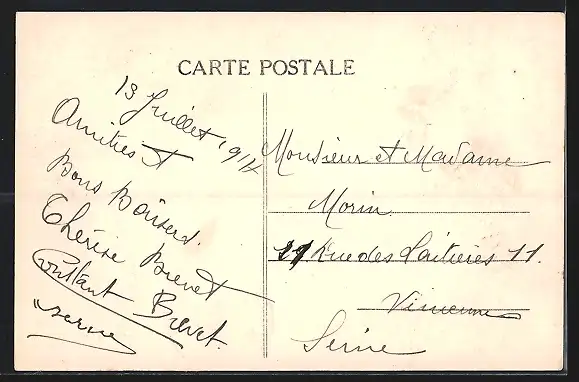 CARTE POSTALE
13 Juillet 1914
Amitiés et
Bons Baisers.
Thérèse Brevet
Constant Brevet.
Monsieur et Madame
Morin
11 Rue des Laitières 11.
Vincennes
Seine